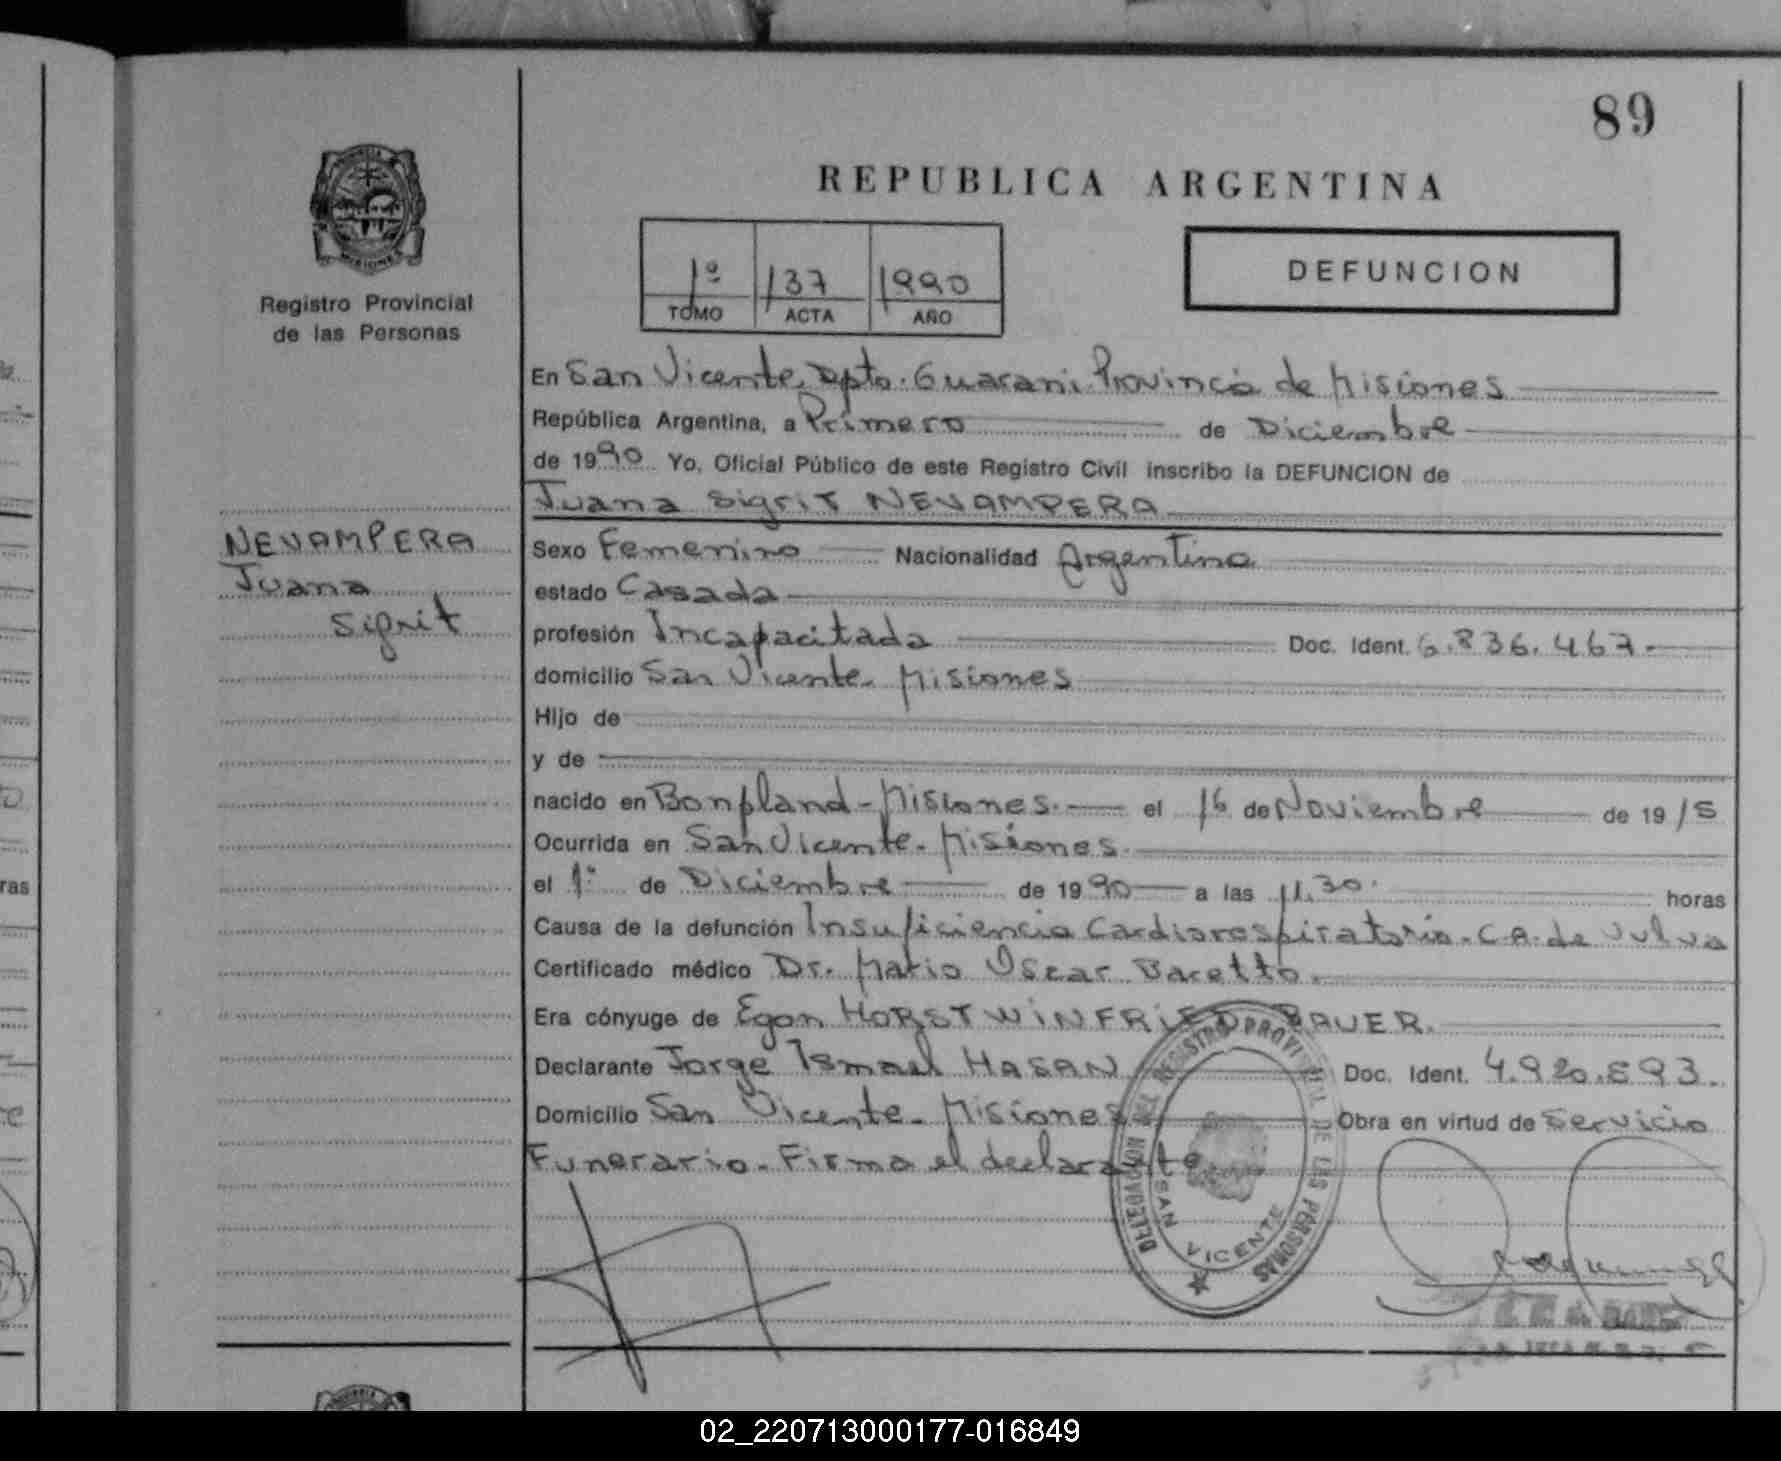 89
REPUBLICA ARGENTINA
Registro Provincial
de las Personas
1º 137 1990
TOMO ACTA AÑO
DEFUNCION
En San Vicente, Dpto. Guarani Provincia de Misiones
República Argentina, a Primero de Diciembre
de 1990 Yo, Oficial Público de este Registro Civil inscribo la DEFUNCION de
Juana Sigrit NEVAMPERA
NEVAMPERA
Juana
Sigrit
Sexo Femenino Nacionalidad Argentina
estado Casada
profesión Incapacitada Doc. Ident. 6.836.467.
domicilio San Vicente. Misiones
Hijo de
y de
nacido en Bonpland - Misiones. el 16 de Noviembre de 19
Ocurrida en San Vicente. Misiones.
el 1º de Diciembre de 1990 a las 11.30. horas
Causa de la defunción Insuficiencia Cardiorespiratoria. C.A. de Vulva
Certificado médico Dr. Mario Oscar Baretto.
Era cónyuge de Egon HORST WINFRIED BAUER.
Declarante Jorge Ismael HASAN Doc. Ident. 4.920.893.
Domicilio San Vicente. Misiones Obra en virtud de Servicio
Funerario. Firma el declarante
DELEGACION DEL REGISTRO PROVINCIAL DE LAS PERSONAS
SAN VICENTE
ras
02_220713000177-016849